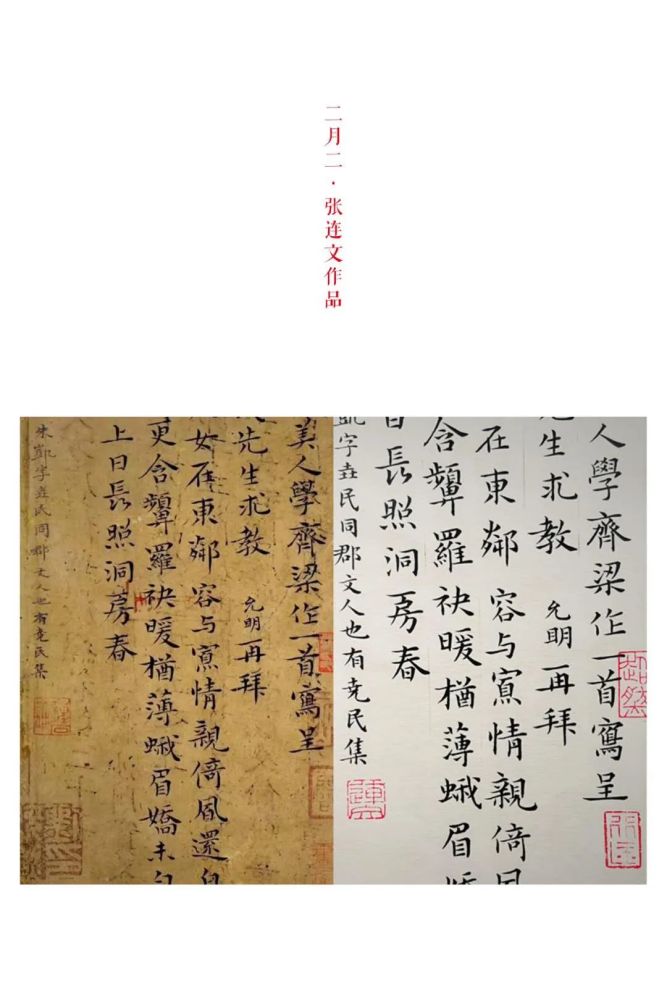 二月二·张连文作品
美人學齊梁作一首寫呈
先生求教 允明再拜
如在東鄰容与情親倚風還自
更含顰羅袂暖猶薄蛾眉嬌未
上日長照洞房春
朱凱字堯民同郡文人也有堯民集
人學齊梁作一首寫呈
生求教 允明再拜
在東鄰容与情親倚風
含顰羅袂暖猶薄蛾眉嬌
日長照洞房春
凱字堯民同郡文人也有堯民集